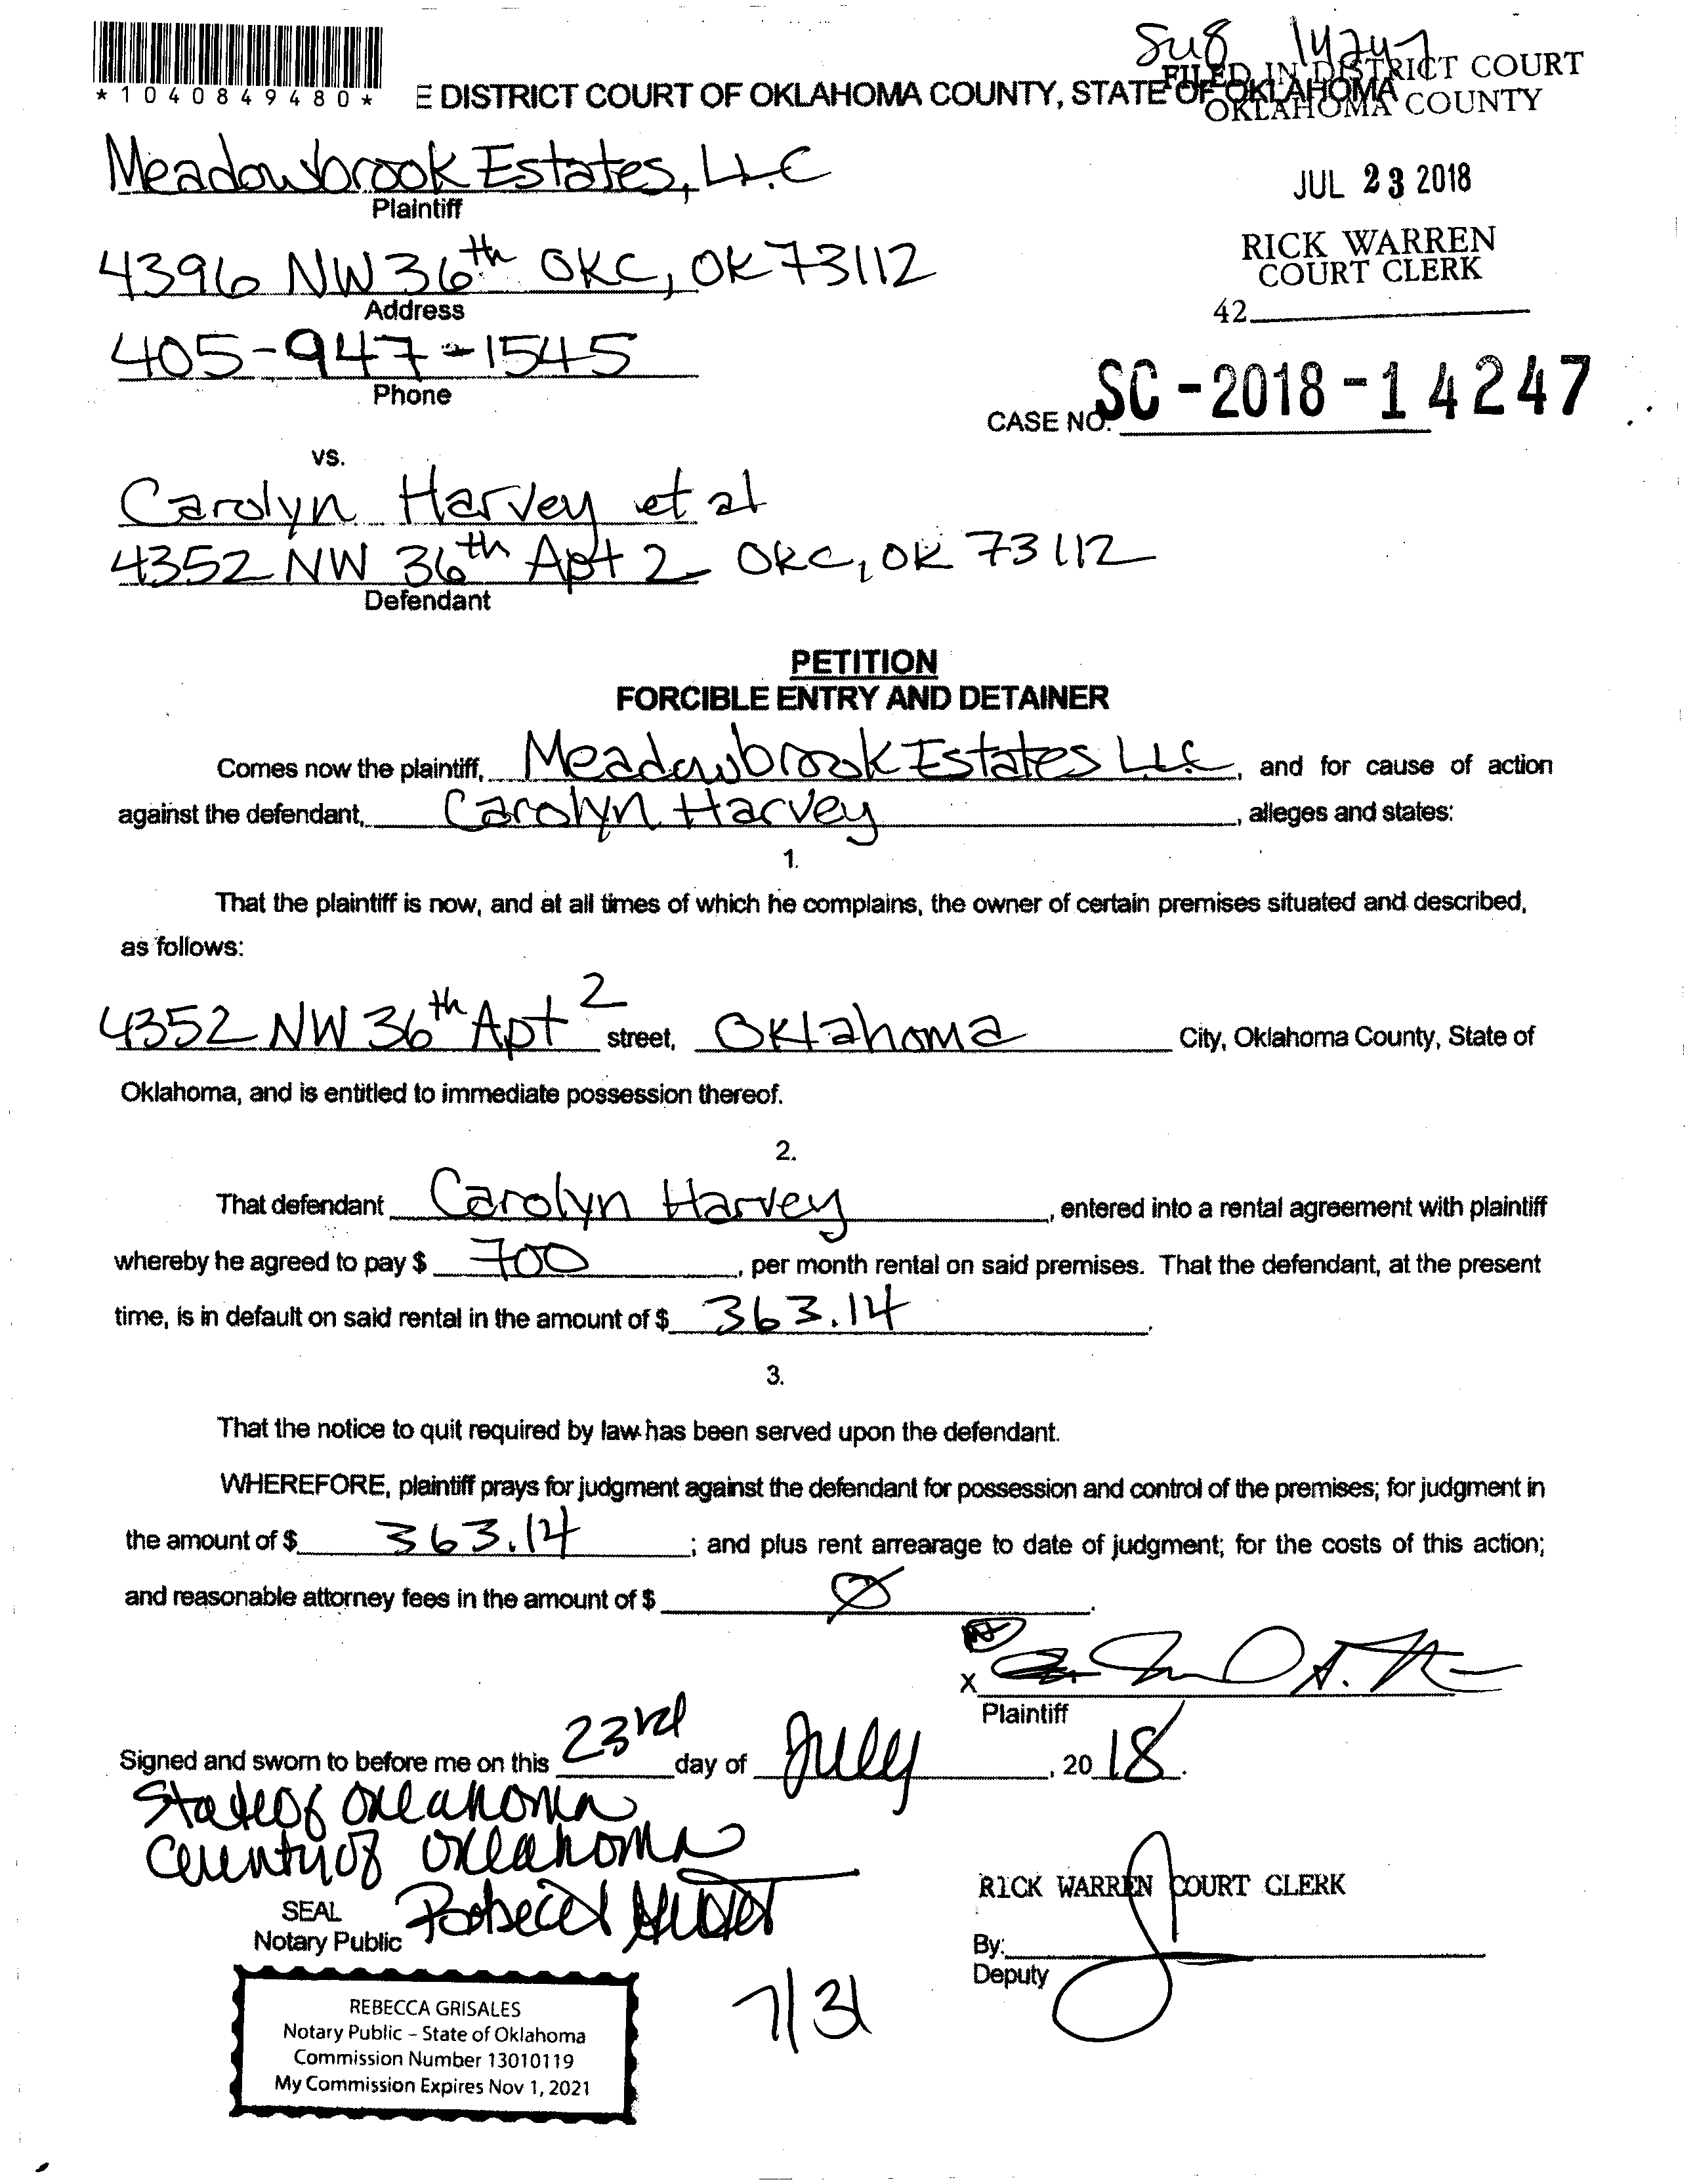 Su8 14247
*1040849480*
E DISTRICT COURT OF OKLAHOMA COUNTY, STATE OF OKLAHOMA
FILED IN DISTRICT COURT
OKLAHOMA COUNTY
Meadowbrook Estates, LLC
Plaintiff
JUL 23 2018
4396 NW 36th OKC, OK 73112
Address
RICK WARREN
COURT CLERK
42
405-947-1545
Phone
CASE NO. SC-2018-14247
vs.
Carolyn Harvey et al
4352 NW 36th Apt 2 OKC, OK 73112
Defendant
PETITION
FORCIBLE ENTRY AND DETAINER
Comes now the plaintiff, Meadowbrook Estates LLC, and for cause of action
against the defendant, Carolyn Harvey, alleges and states:
1.
That the plaintiff is now, and at all times of which he complains, the owner of certain premises situated and described,
as follows:
4352 NW 36th Apt 2 street, Oklahoma City, Oklahoma County, State of
Oklahoma, and is entitled to immediate possession thereof.
2.
That defendant Carolyn Harvey, entered into a rental agreement with plaintiff
whereby he agreed to pay $ 700, per month rental on said premises. That the defendant, at the present
time, is in default on said rental in the amount of $ 363.14.
3.
That the notice to quit required by law has been served upon the defendant.
WHEREFORE, plaintiff prays for judgment against the defendant for possession and control of the premises; for judgment in
the amount of $ 363.14; and plus rent arrearage to date of judgment; for the costs of this action;
and reasonable attorney fees in the amount of $ Ø.
X
Plaintiff
Signed and sworn to before me on this 23rd day of July, 2018.
State of Oklahoma
County of Oklahoma
SEAL
Notary Public
RICK WARREN COURT CLERK
By:
Deputy
7/31
REBECCA GRISALES
Notary Public – State of Oklahoma
Commission Number 13010119
My Commission Expires Nov 1, 2021